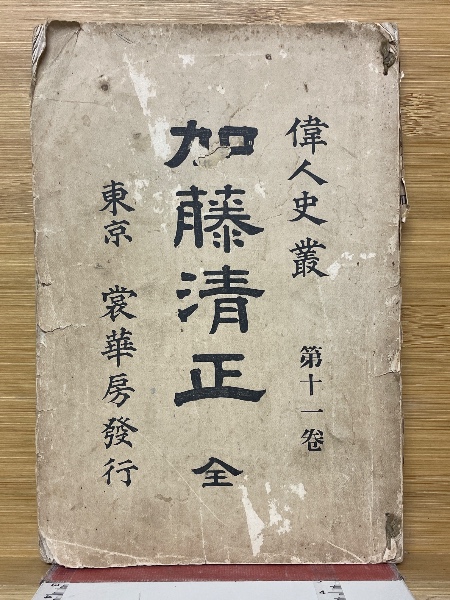 偉人史叢 第十一卷
加藤清正 全
東京 裳華房發行